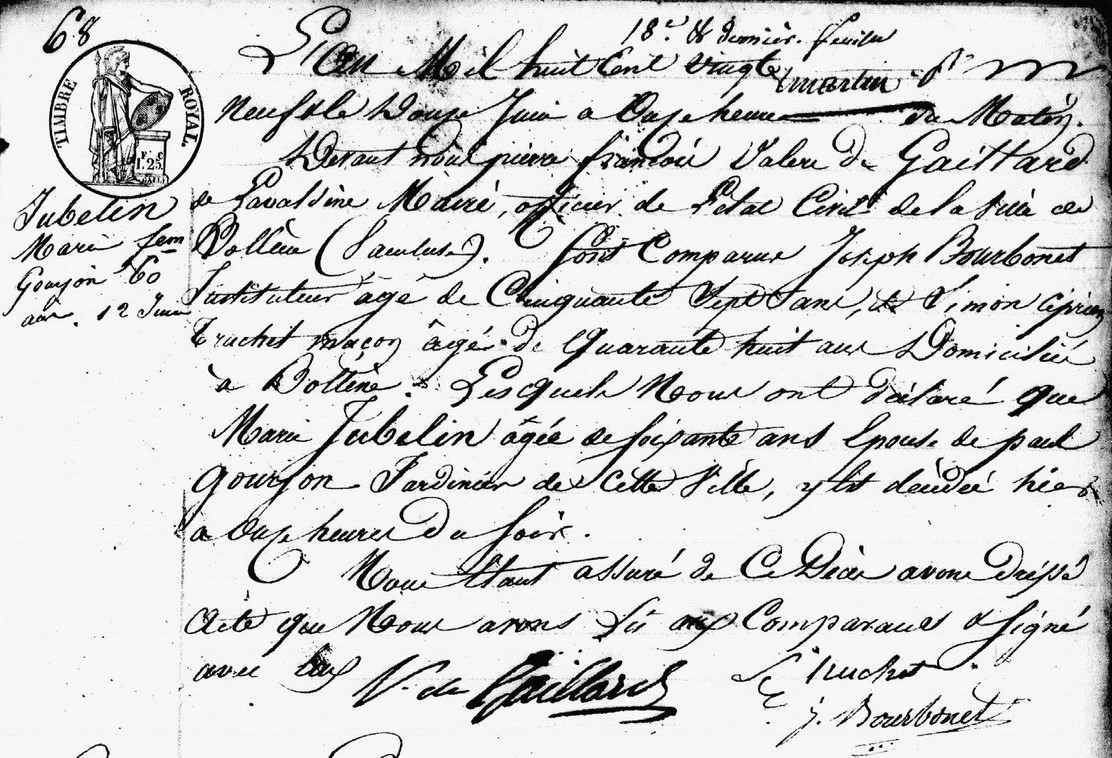 68
18e & dernier feuillet
martin
TIMBRE ROYAL
F. C.
1.25
Jubelin
Marie fem
Gourjon 60
ans. 12 Juin
L'an Mil huit Cent vingt
neuf & le Douze Juin a Onze heures du Matin.
Devant nous pierre françois Valere De Gaillard
de Lavaldène Maire, officier de L'etat Civil de la Ville de
Bollène (Vaucluse). Sont Comparus Joseph Bourbonet
Instituteur âgé de Cinquante Sept ans, et Simon Ciprien
Truchet maçon âgé de Quarante huit ans Domiciliés
à Bollène. Lesquels Nous ont déclaré que
Marie Jubelin âgée de soixante ans Epouse de paul
gourjon Jardinier de cette Ville, y est décédée hier
a Onze heures Du soir.
Nous Etant assuré de Ce Décès avons Dréssé
Acte que Nous avons Lû aux Comparants & signé
avec Eux
V. de Gaillard
Truchet
J. Bourbonet